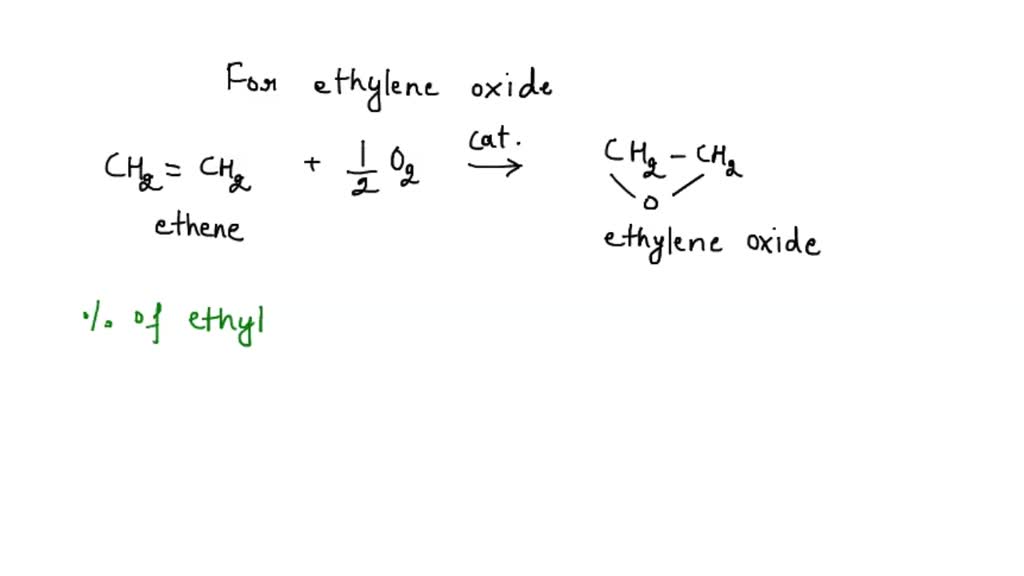 For ethylene oxide
CH2 = CH2 + 1/2 O2 cat. → CH2 - CH2
O
ethene ethylene oxide
% of ethyl